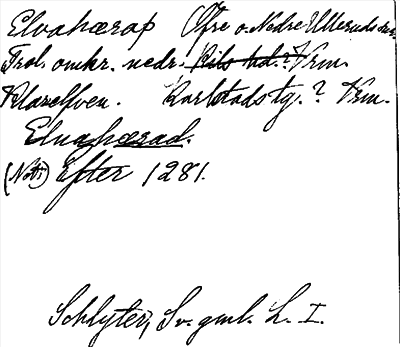 Elvahæraþ Öfre o. Nedre Ulleruds hd.
Trol. omkr. nedr. Kils hd.? Vrm.
Klarelfven. Karlstads tg.? Vrm.
Elvahærad.
(Not.) Efter 1281.
Schlyter, Sv. gml. L. I.